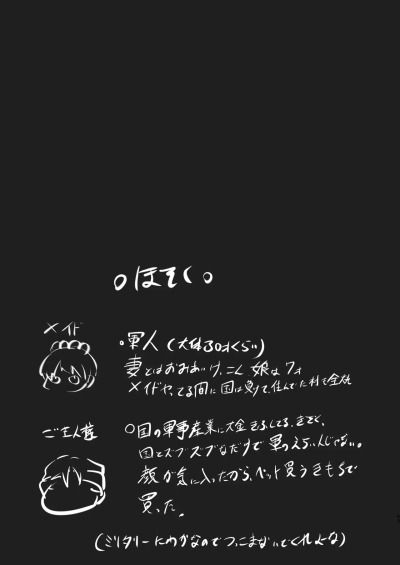 。ほそく。
メイド
・軍人(大体30才くらい)
妻とはおみあいけっこん 娘は7才
メイドやってる間に国は負けて、住んでた村も全焼
ご主人様
〇国の軍事産業に大金をおとしてる、きぞく、
国とズブズブなだけで軍のえらい人じゃない。
顔が気に入ったから、ペット買うきもちで
買った。
(ミリタリーにわかなのでつっこまないでくれよな)